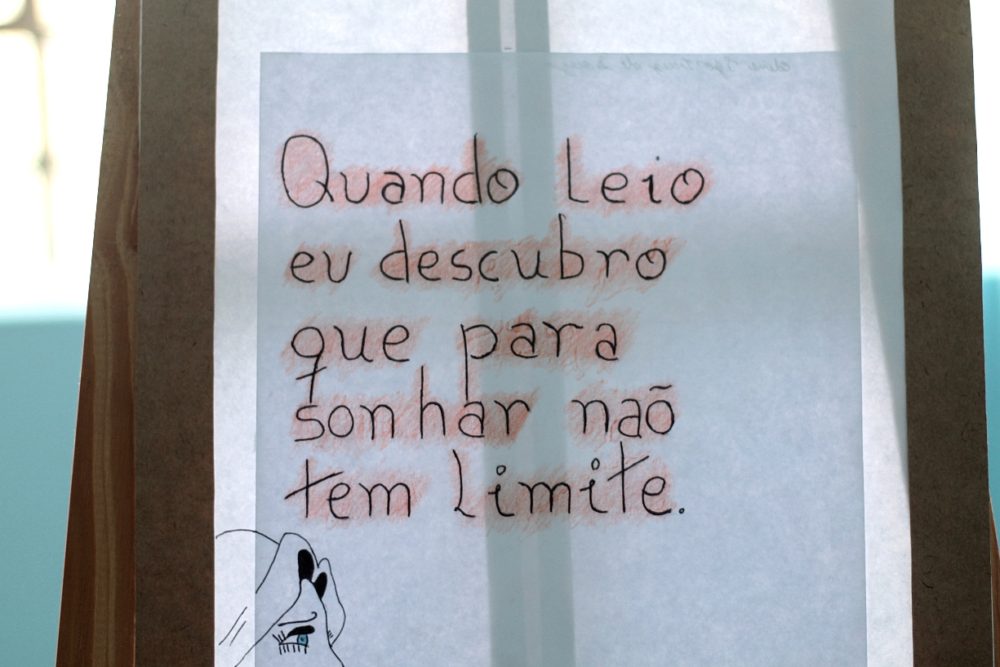 Quando Leio
eu descubro
que para
sonhar naõ
tem Limite.